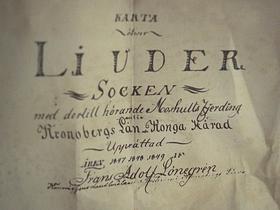 KARTA
öfver
LJUDER
SOCKEN
med dertill hörande Moshults fjerding
uti
Kronobergs Län, Konga Härad
Upprättad
ÅREN 1847 1848 1849 af
Frans Adolf Lönegrén